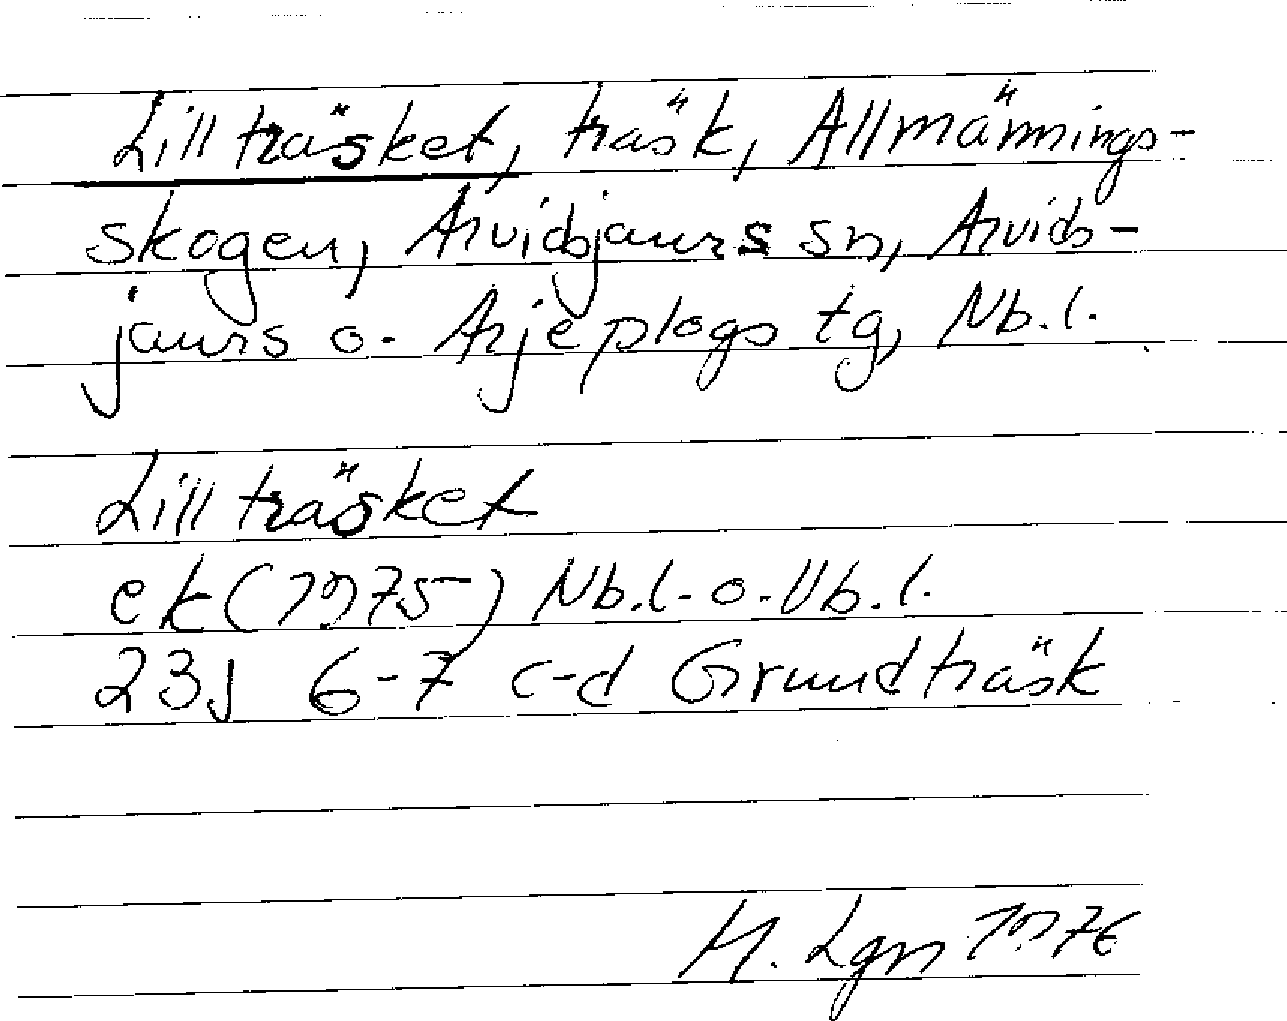 Lillträsket, träsk, Allmännings-
skogen, Arvidsjaurs sn, Arvids-
jaurs o. Arjeplogs tg, Nb.l.
Lillträsket
ek (1975) Nb.l. o. Vb.l.
23J 6-7 c-d Grundträsk
H. Lgn 1976